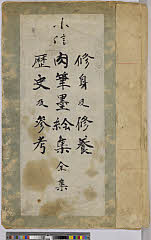 小信
修身及修養
肉筆墨絵集全集
歴史及参考